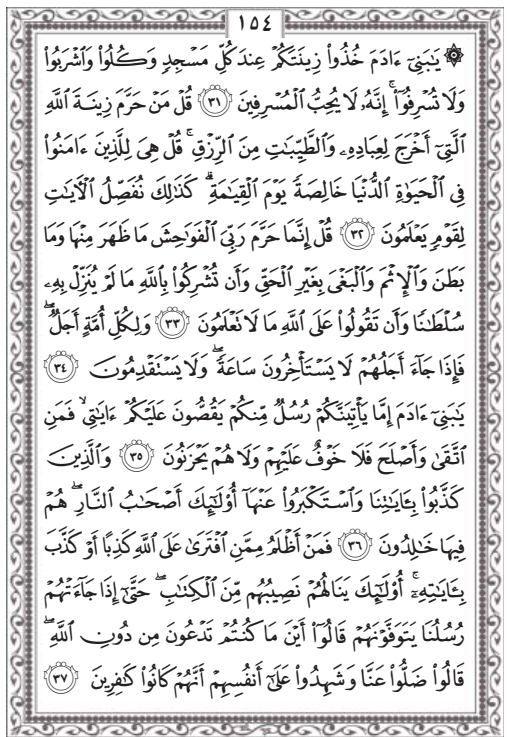 ١٥٤
۞ يَـٰبَنِىٓ ءَادَمَ خُذُوا۟ زِينَتَكُمْ عِندَ كُلِّ مَسْجِدٍ وَكُلُوا۟ وَٱشْرَبُوا۟
وَلَا تُسْرِفُوٓا۟ ۚ إِنَّهُۥ لَا يُحِبُّ ٱلْمُسْرِفِينَ ﴿٣١﴾ قُلْ مَنْ حَرَّمَ زِينَةَ ٱللَّهِ
ٱلَّتِىٓ أَخْرَجَ لِعِبَادِهِۦ وَٱلطَّيِّبَـٰتِ مِنَ ٱلرِّزْقِ ۚ قُلْ هِىَ لِلَّذِينَ ءَامَنُوا۟
فِى ٱلْحَيَوٰةِ ٱلدُّنْيَا خَالِصَةً يَوْمَ ٱلْقِيَـٰمَةِ ۗ كَذَٰلِكَ نُفَصِّلُ ٱلْـَٔايَـٰتِ
لِقَوْمٍ يَعْلَمُونَ ﴿٣٢﴾ قُلْ إِنَّمَا حَرَّمَ رَبِّىَ ٱلْفَوَٰحِشَ مَا ظَهَرَ مِنْهَا وَمَا
بَطَنَ وَٱلْإِثْمَ وَٱلْبَغْىَ بِغَيْرِ ٱلْحَقِّ وَأَن تُشْرِكُوا۟ بِٱللَّهِ مَا لَمْ يُنَزِّلْ بِهِۦ
سُلْطَـٰنًا وَأَن تَقُولُوا۟ عَلَى ٱللَّهِ مَا لَا تَعْلَمُونَ ﴿٣٣﴾ وَلِكُلِّ أُمَّةٍ أَجَلٌ ۖ
فَإِذَا جَآءَ أَجَلُهُمْ لَا يَسْتَأْخِرُونَ سَاعَةً ۖ وَلَا يَسْتَقْدِمُونَ ﴿٣٤﴾
يَـٰبَنِىٓ ءَادَمَ إِمَّا يَأْتِيَنَّكُمْ رُسُلٌ مِّنكُمْ يَقُصُّونَ عَلَيْكُمْ ءَايَـٰتِى ۙ فَمَنِ
ٱتَّقَىٰ وَأَصْلَحَ فَلَا خَوْفٌ عَلَيْهِمْ وَلَا هُمْ يَحْزَنُونَ ﴿٣٥﴾ وَٱلَّذِينَ
كَذَّبُوا۟ بِـَٔايَـٰتِنَا وَٱسْتَكْبَرُوا۟ عَنْهَآ أُو۟لَـٰٓئِكَ أَصْحَـٰبُ ٱلنَّارِ ۖ هُمْ
فِيهَا خَـٰلِدُونَ ﴿٣٦﴾ فَمَنْ أَظْلَمُ مِمَّنِ ٱفْتَرَىٰ عَلَى ٱللَّهِ كَذِبًا أَوْ كَذَّبَ
بِـَٔايَـٰتِهِۦٓ ۚ أُو۟لَـٰٓئِكَ يَنَالُهُمْ نَصِيبُهُم مِّنَ ٱلْكِتَـٰبِ ۖ حَتَّىٰٓ إِذَا جَآءَتْهُمْ
رُسُلُنَا يَتَوَفَّوْنَهُمْ قَالُوٓا۟ أَيْنَ مَا كُنتُمْ تَدْعُونَ مِن دُونِ ٱللَّهِ ۖ
قَالُوا۟ ضَلُّوا۟ عَنَّا وَشَهِدُوا۟ عَلَىٰٓ أَنفُسِهِمْ أَنَّهُمْ كَانُوا۟ كَـٰفِرِينَ ﴿٣٧﴾